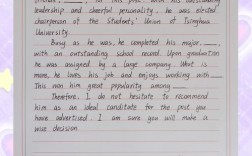 friends, ___. In this post, with his outstanding
leadership and cheerful personality, he was elected
chairperson of the Students' Union of Tsinghua
University.
Busy as he was, he completed his major, ___,
with an outstanding school record. Upon graduation
he was assigned by a large company. What is
more, he loves his job and enjoys working with ___
This won him great popularity among ___.
Therefore, I do not hesitate to recommend
him as an ideal candidate for the post you
have advertised. I am sure you will make a
wise decision